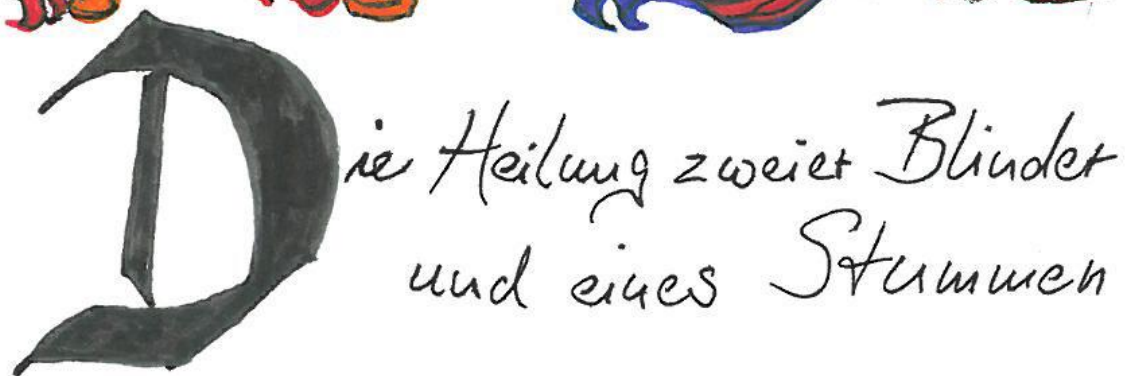 Die Heilung zweier Blinder
und eines Stummen